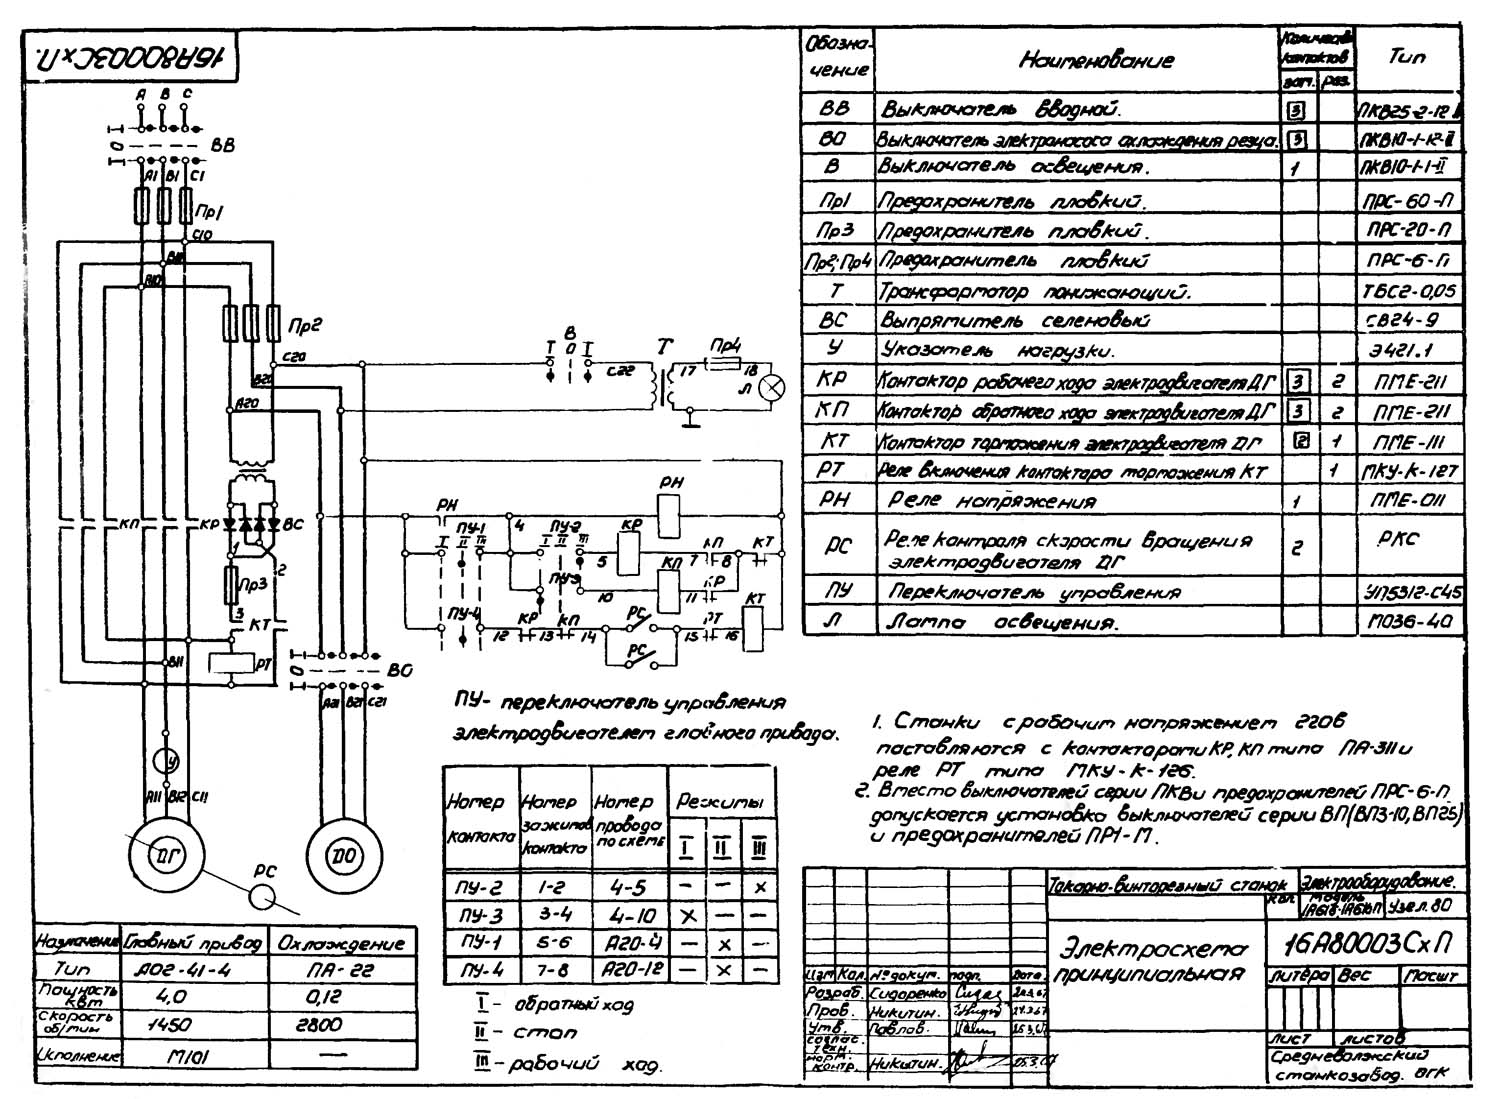 16А80003СхП.
А В С
I О I ВВ
А1 В1 С1
Пр1
С10
В10
А10
Пр2
С20
В20
А20
I В О I
С22
Т
17
Пр4
18
Л
КП
КР
ВС
1
2
Пр3
3
КТ
РТ
В11
I О I ВО
А21 В21 С21
У
А11 В12 С11
ДГ
ДО
РС
РН
РН
4
ПУ-1
I II III
ПУ-2
I II III
5
КР
КП
7
8
КТ
ПУ-3
10
КП
11
КР
КТ
ПУ-4
12
КР
13
КП
14
РС
РС
15
РТ
16
Обозна-чение Наименование Количество контактов зам. раз. Тип
ВВ Выключатель вводной. 3 ПКВ25-2-12
ВО Выключатель электронасоса охлаждения резца. 3 ПКВ10-1-12-II
В Выключатель освещения. 1 ПКВ10-1-1-II
Пр1 Предохранитель плавкий. ПРС-60-П
Пр3 Предохранитель плавкий. ПРС-20-П
Пр2; Пр4 Предохранитель плавкий ПРС-6-П
Т Трансформатор понижающий. ТБС2-0,05
ВС Выпрямитель селеновый СВ24-9
У Указатель нагрузки. Э421.1
КР Контактор рабочего хода электродвигателя ДГ 3 2 ПМЕ-211
КП Контактор обратного хода электродвигателя ДГ 3 2 ПМЕ-211
КТ Контактор торможения электродвигателя ДГ 2 1 ПМЕ-111
РТ Реле включения контактора торможения КТ 1 МКУ-К-127
РН Реле напряжения 1 ПМЕ-011
РС Реле контроля скорости вращения электродвигателя ДГ 2 РКС
ПУ Переключатель управления УП5312-С45
Л Лампа освещения. МО36-40
ПУ- переключатель управления
электродвигателем главного привода.
Номер контакта Номер зажимов контакта Номер провода по схеме Режимы
I II III
ПУ-2 1-2 4-5 – – х
ПУ-3 3-4 4-10 х – –
ПУ-1 5-6 А20-4 – х –
ПУ-4 7-8 А20-12 – х –
I - обратный ход
II - стоп
III - рабочий ход.
1. Станки с рабочим напряжением 220в
поставляются с контакторами КР, КП типа ПА-311 и
реле РТ типа МКУ-К-126.
2. Вместо выключателей серии ПКВ и предохранителей ПРС-6-П
допускается установка выключателей серии ВП(ВП3-10, ВП25)
и предохранителей ПР1-М.
Назначение Главный привод Охлаждение
Тип АО2-41-4 ПА-22
Мощность квт 4,0 0,12
Скорость об/мин 1450 2800
Исполнение М101 —
Токарно-винторезный станок
Электрооборудование.
Кол. Модель 1А616-1А616П Узел 80
Электросхема
принципиальная
16А80003СхП
Литера Вес Масшт
Лист Листов
Средневолжский
станкозавод. ОГК
Изм Кол. № докум. подп. Дата
Разраб. Сидоренко
Пров. Никитин.
Утв. Павлов.
соглас. техн.
норм. контр. Никитин.